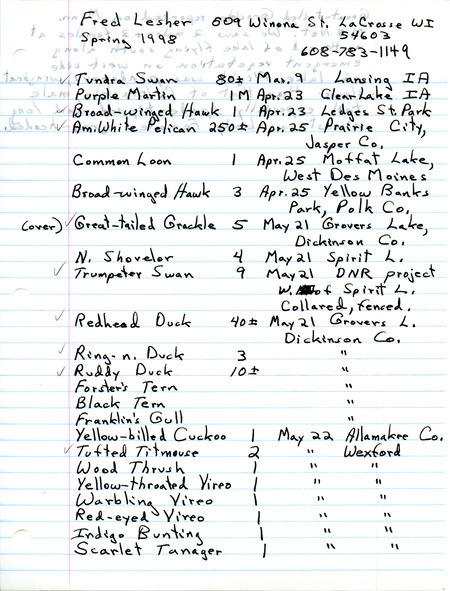 Fred Lesher 609 Winona St. LaCrosse WI
Spring 1998 54603
608-783-1149
✓ Tundra Swan 80± Mar. 9 Lansing IA
Purple Martin 1M Apr. 23 Clear Lake IA
✓ Broad-winged Hawk 1 Apr. 23 Ledges St. Park
✓ Am. White Pelican 250± Apr. 25 Prairie City,
Jasper Co.
Common Loon 1 Apr. 25 Moffat Lake,
West Des Moines
Broad-winged Hawk 3 Apr. 25 Yellow Banks
Park, Polk Co.
(over) ✓ Great-tailed Grackle 5 May 21 Grovers Lake,
Dickinson Co.
N. Shovelor 4 May 21 Spirit L.
✓ Trumpeter Swan 9 May 21 DNR project
W. of Spirit L.
Collared, fenced.
✓ Redhead Duck 40± May 21 Grovers L.
Dickinson Co.
✓ Ring-n. Duck 3 "
✓ Ruddy Duck 10± "
Forster's Tern "
Black Tern "
Franklin's Gull "
Yellow-billed Cuckoo 1 May 22 Allamakee Co.
✓ Tufted Titmouse 2 " Wexford
Wood Thrush 1 " "
Yellow-throated Vireo 1 " "
Warbling Vireo 1 " "
Red-eyed Vireo 1 " "
Indigo Bunting 1 " "
Scarlet Tanager 1 " "